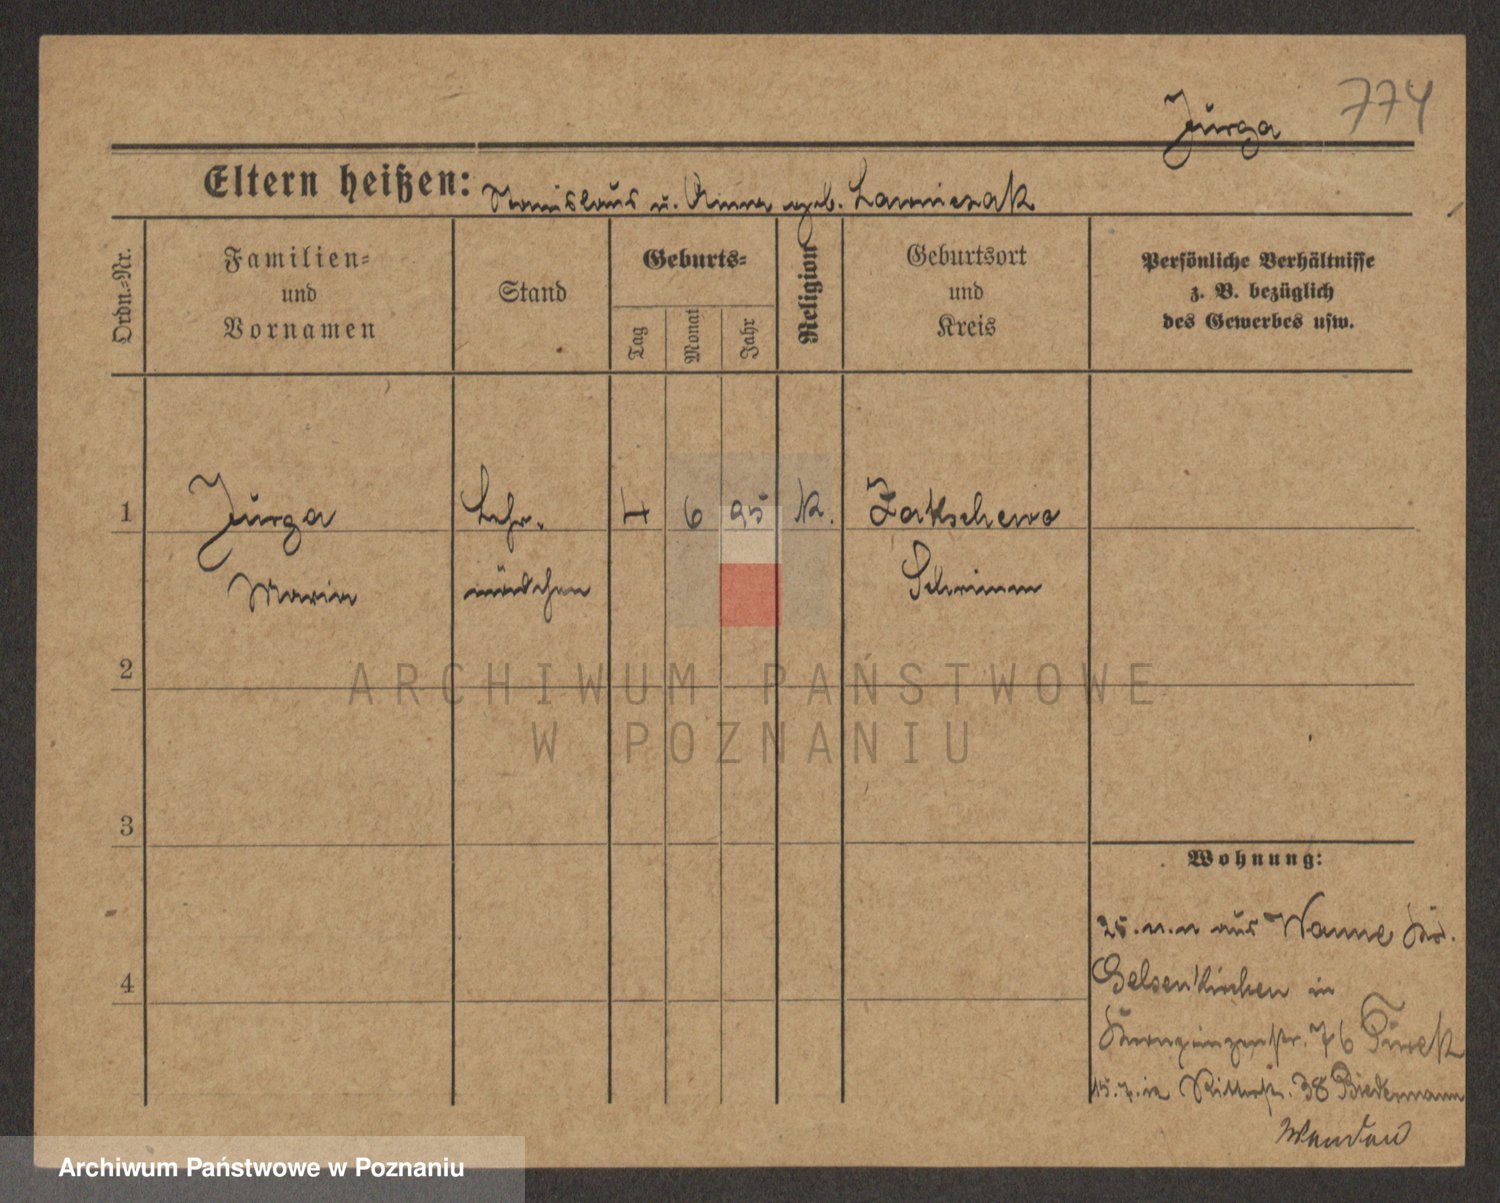 774
Jurga
Eltern heißen: Stanislaus u. Anna geb. Lawniczak
Ordn.=Nr.
Familien=
und
Vornamen
Stand
Geburts=
Tag
Monat
Jahr
Religion
Geburtsort
und
Kreis
Persönliche Verhältnisse
z. B. bezüglich
des Gewerbes usw.
1 Jurga Lehr- 4 6 95 K. Zakschewo
Maria mädchen Schrimm
2
ARCHIWUM PAŃSTWOWE
W POZNANIU
3
4
Wohnung:
25. aus Wanne Kr.
Gelsenkirchen in
Kronprinzenstr. 76
15.7. in Ritterstr. 38 Biedermann
Archiwum Państwowe w Poznaniu